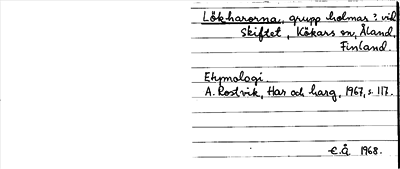 Lökharorna, grupp holmar: vid
Skiftet, Kökars sn, Åland,
Finland.
Etymologi.
A. Rostvik, Har och harg, 1967, s. 117.
E.Å. 1968.